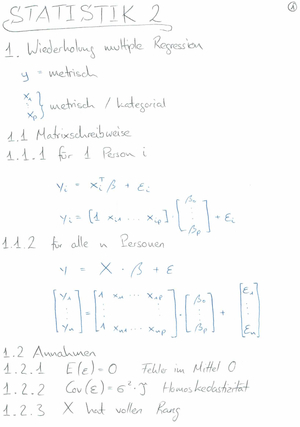 STATISTIK 2
1. Wiederholung multiple Regression
y = metrisch
x₁
⋮
xₚ } metrisch / kategorial
1.1 Matrixschreibweise
1.1.1 für 1 Person i
yᵢ = xᵢᵀ β + εᵢ
yᵢ = [1 xᵢ₁ ... xᵢₚ] · [β₀ ⋮ βₚ] + εᵢ
1.1.2 für alle n Personen
y = X · β + ε
[y₁ ⋮ yₙ] = [1 x₁₁ ... x₁ₚ ⋮ 1 xₙ₁ ... xₙₚ] · [β₀ ⋮ βₚ] + [ε₁ ⋮ εₙ]
1.2 Annahmen
1.2.1 E(ε) = 0 Fehler im Mittel 0
1.2.2 Cov(ε) = σ² · I Homoskedastizität
1.2.3 X hat vollen Rang